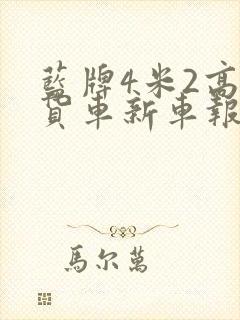 藍牌4米2高
貨車新車報
馬尔萬